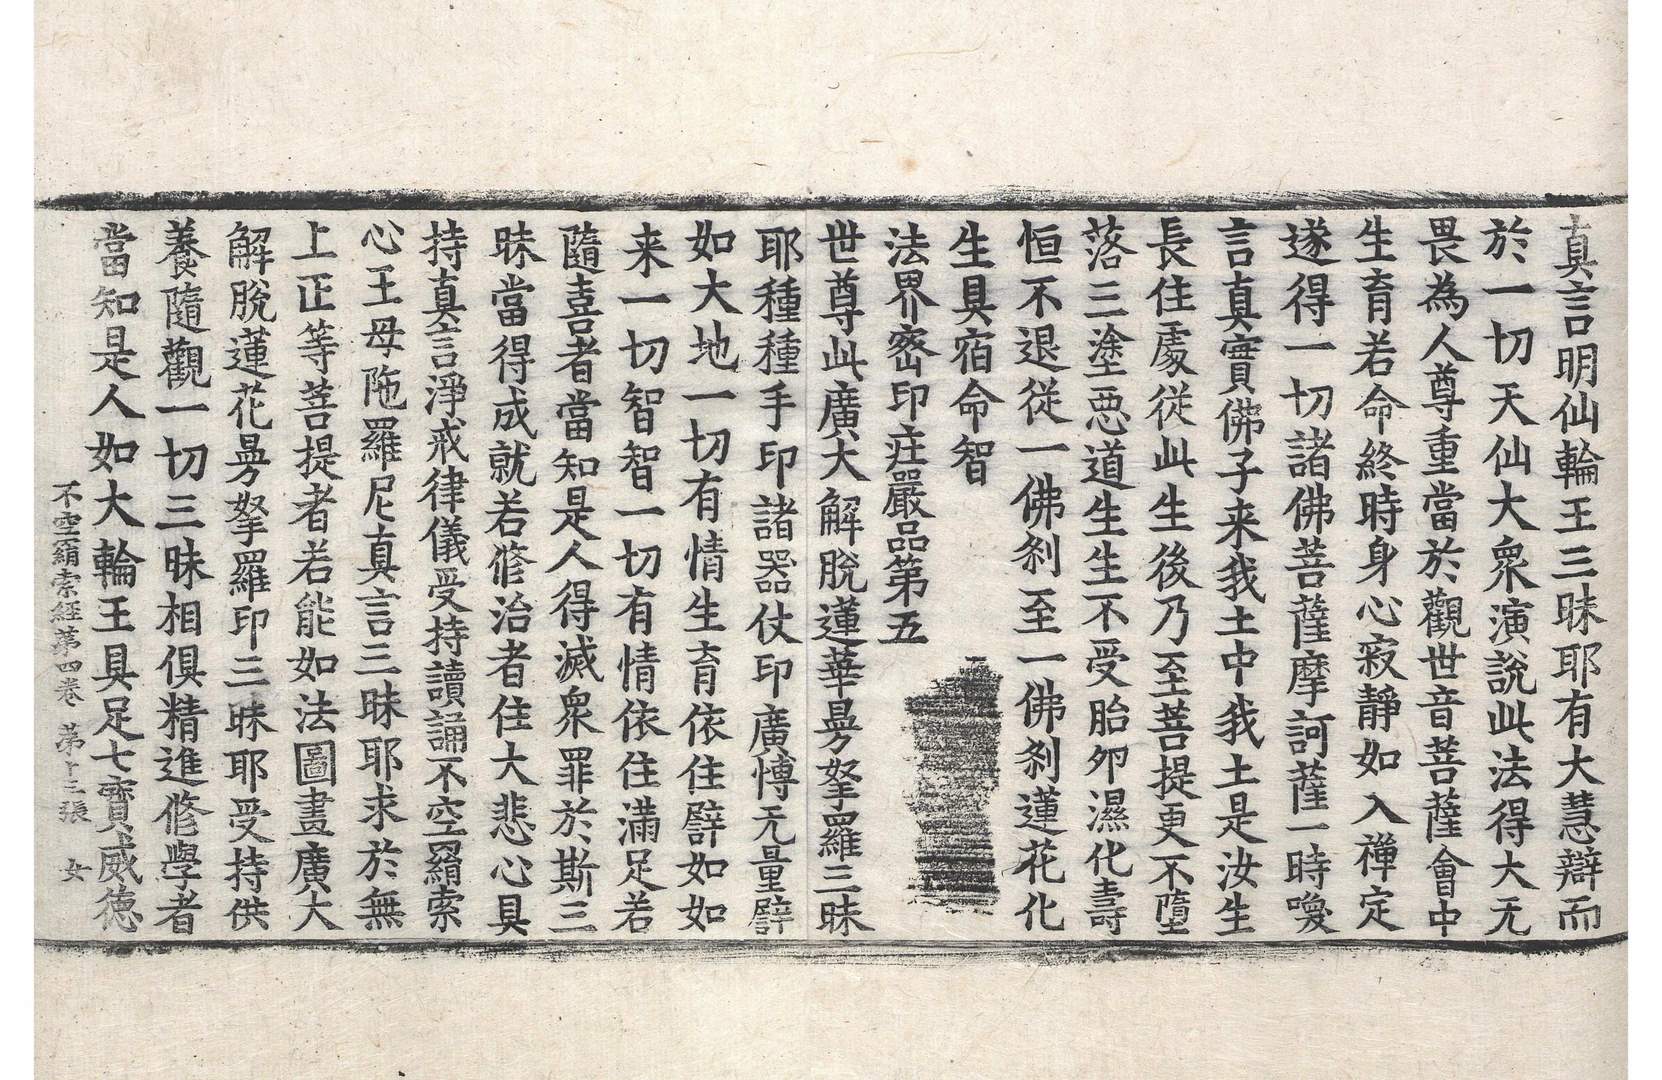 真言明仙輪王三昧耶有大慧辯而
於一切天仙大衆演說此法得大无
畏為人尊重當於觀世音菩薩會中
生育若命終時身心寂靜如入禪定
遂得一切諸佛菩薩摩訶薩一時喚
言真實佛子来我土中我土是汝生
長住處從此生後乃至菩提更不墮
落三塗惡道生生不受胎卵濕化壽
恒不退從一佛刹至一佛刹蓮花化
生具宿命智
法界密印莊嚴品第五
世尊此廣大解脫蓮華曼拏羅三昧
耶種種手印諸器仗印廣愽无量譬
如大地一切有情生育依住譬如如
来一切智智一切有情依住滿足若
隨喜者當知是人得滅衆罪於斯三
昧當得成就若俢治者住大悲心具
持真言淨戒律儀受持讀誦不空羂索
心王母陁羅尼真言三昧耶求於無
上正等菩提者若能如法圖畫廣大
解脫蓮花曼拏羅印三昧耶受持供
養隨觀一切三昧相俱精進俢學者
當知是人如大輪王具足七寶威德
不空羂索経第四卷 第十三張 女